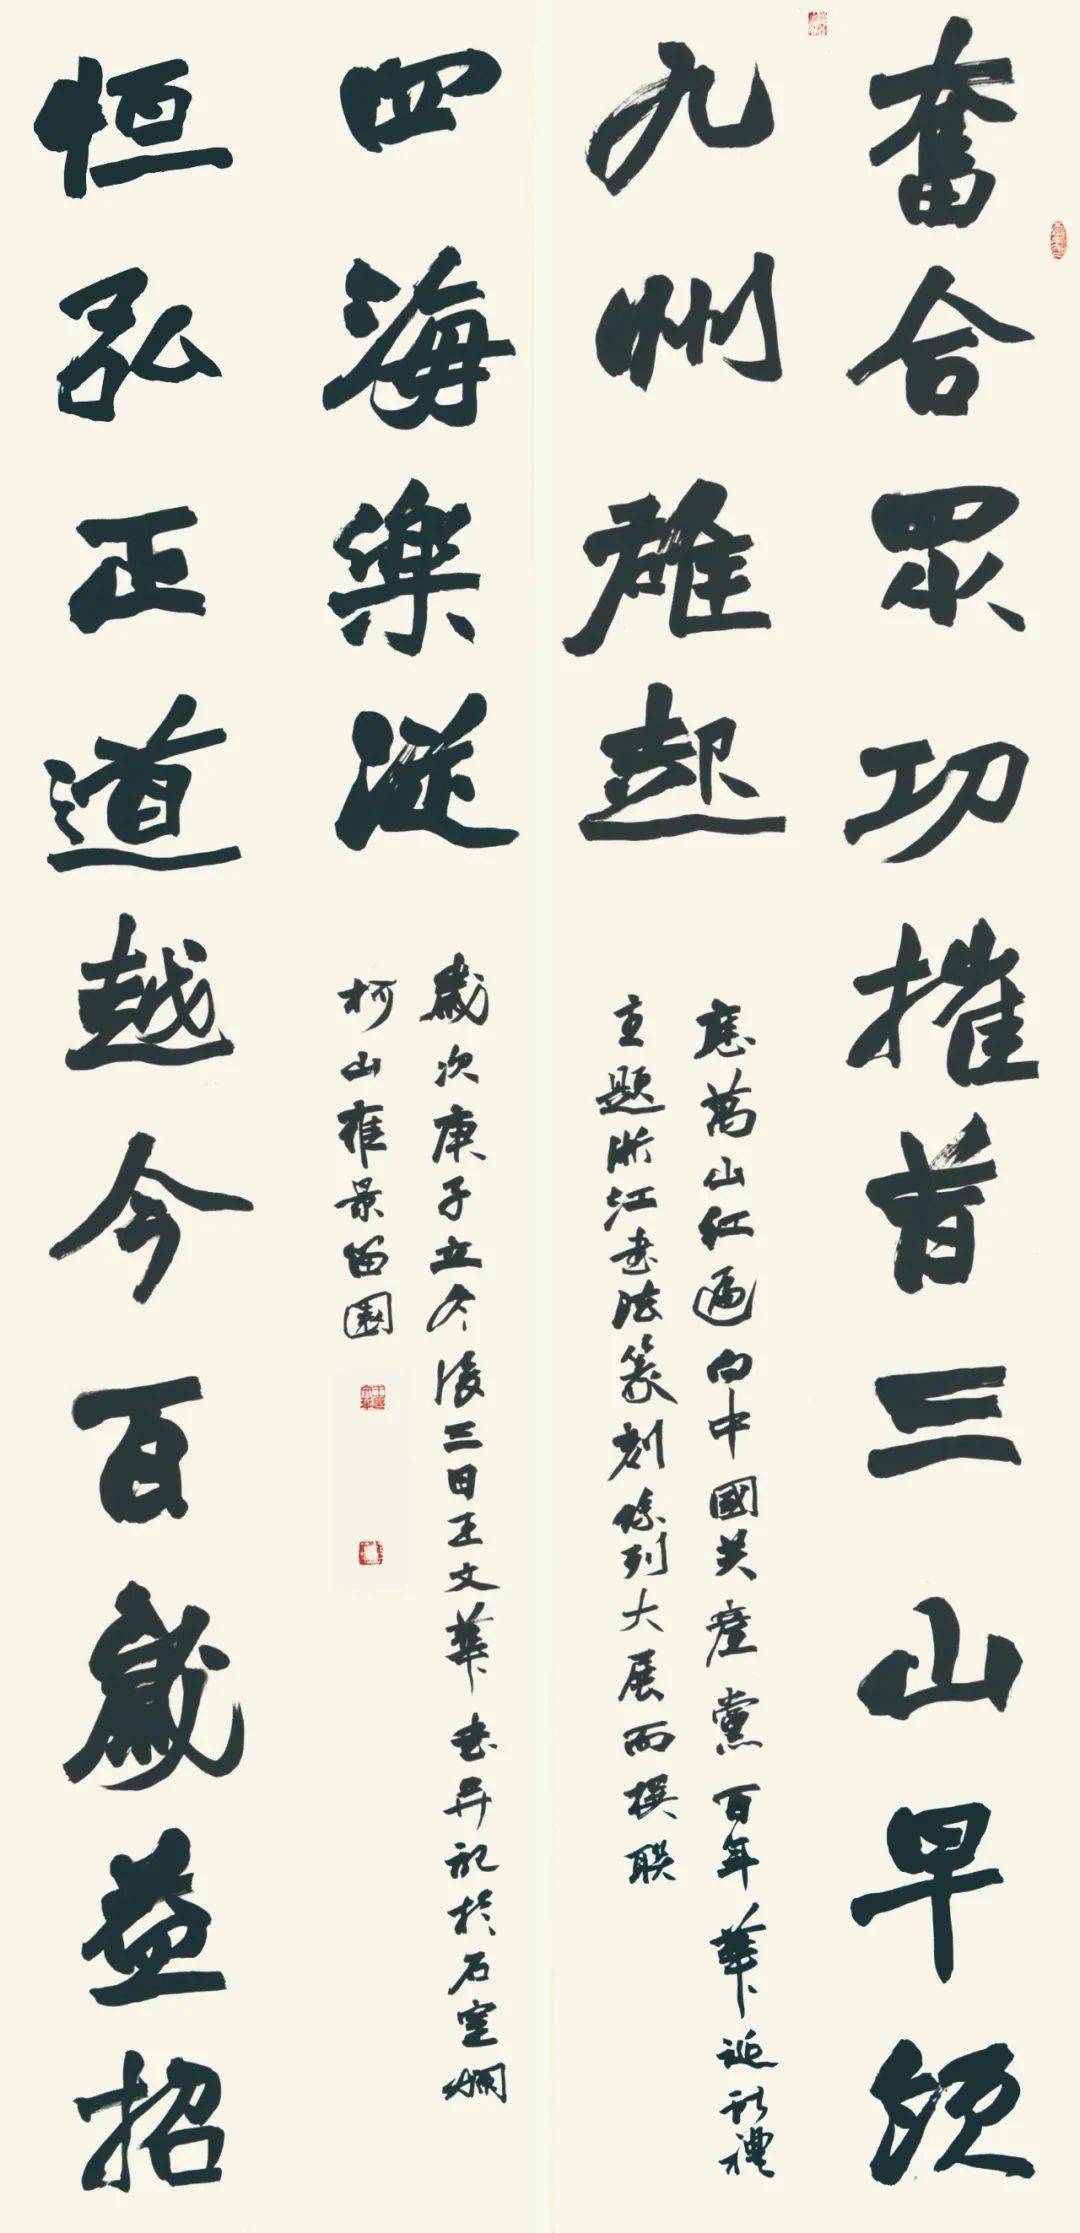 奮合眾功摧首三山早
九州雄起
應萬山紅遍向中國共產黨百年華誕獻禮
主題浙江書法篆刻係列大展而撰聯
恒弘正道越今百歲益招
四海樂從
歲次庚子立冬後三日王文華書并記於石室爛
柯山雅景園